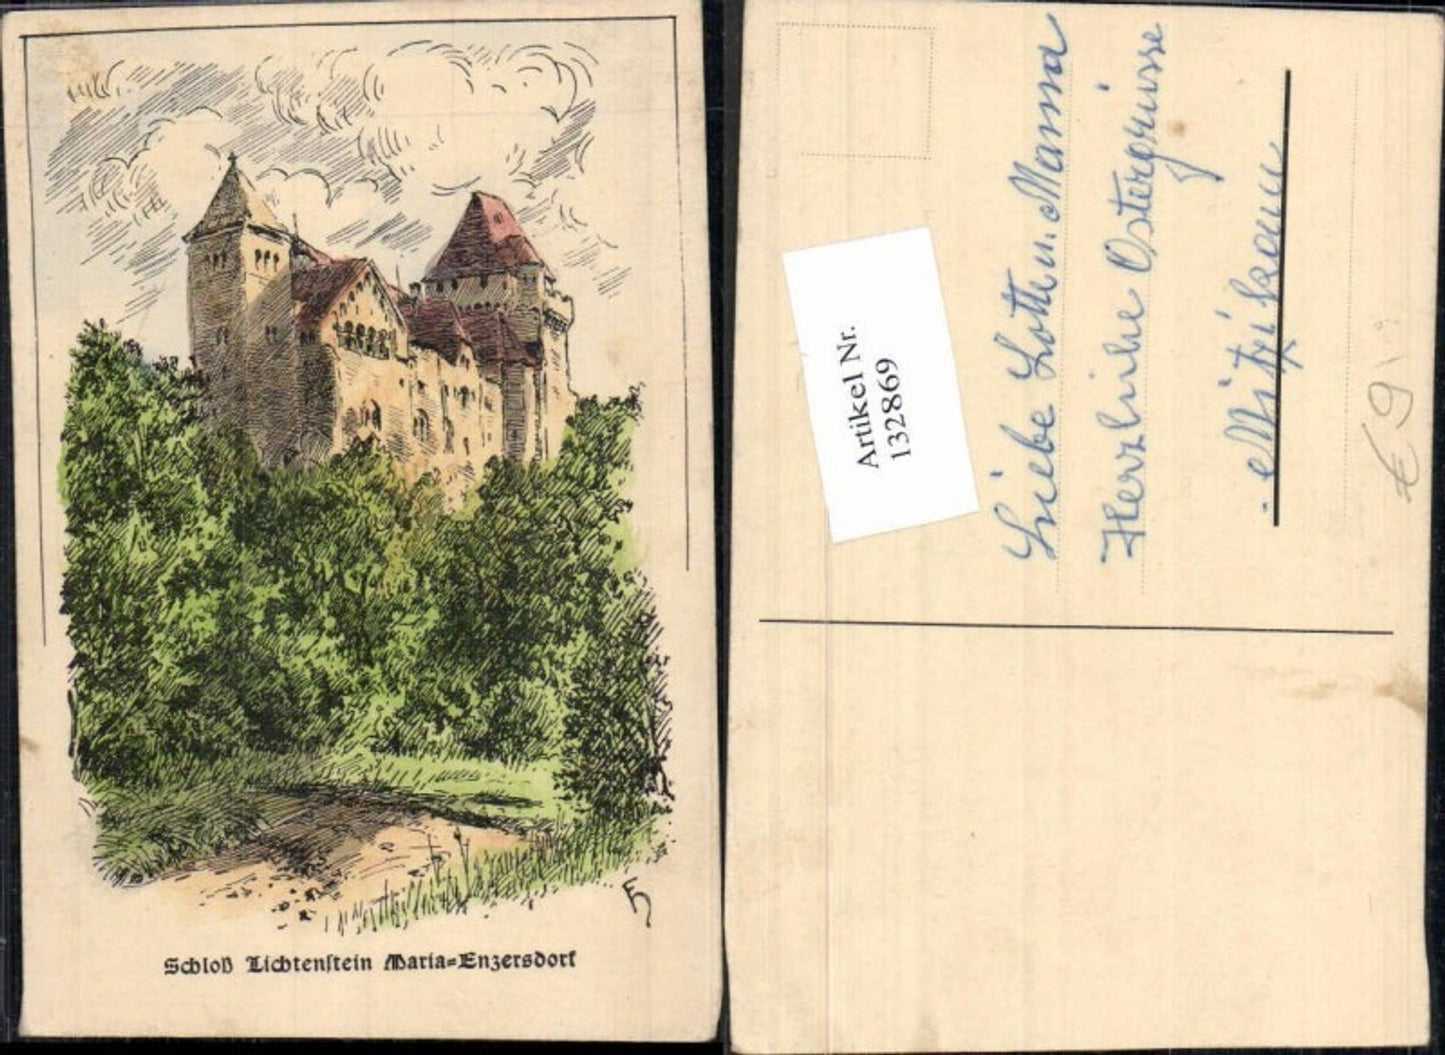 Schloß Lichtenstein Maria=Enzersdorf
Artikel Nr.
132869
Liebe Lotte u. Mama
Herzliche Ostergrüsse
Mitzi
€ 9